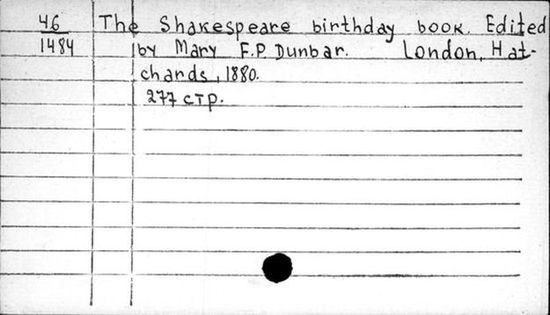 46 The Shakespeare birthday book. Edited
1484 by Mary F.P. Dunbar. London, Hat-
chards, 1880.
277 стр.